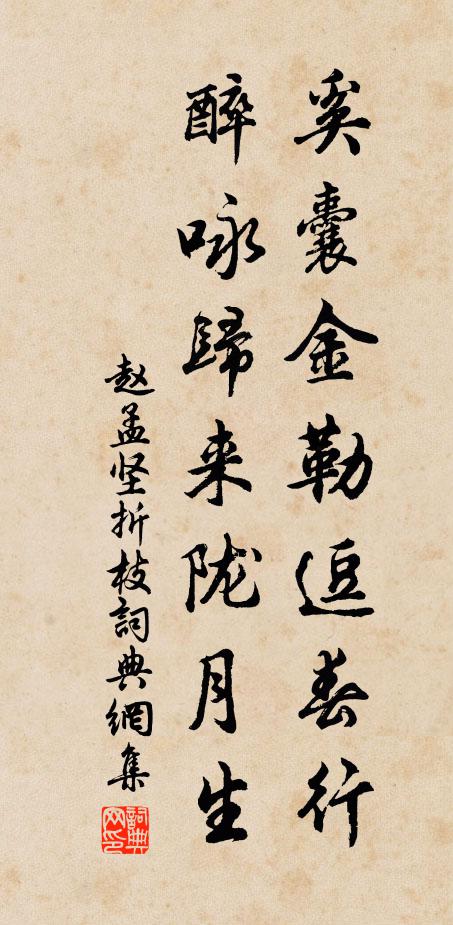 奚囊金勒逗春行
醉咏歸来陇月生
赵孟坚折枝詞典網集
詞典网印